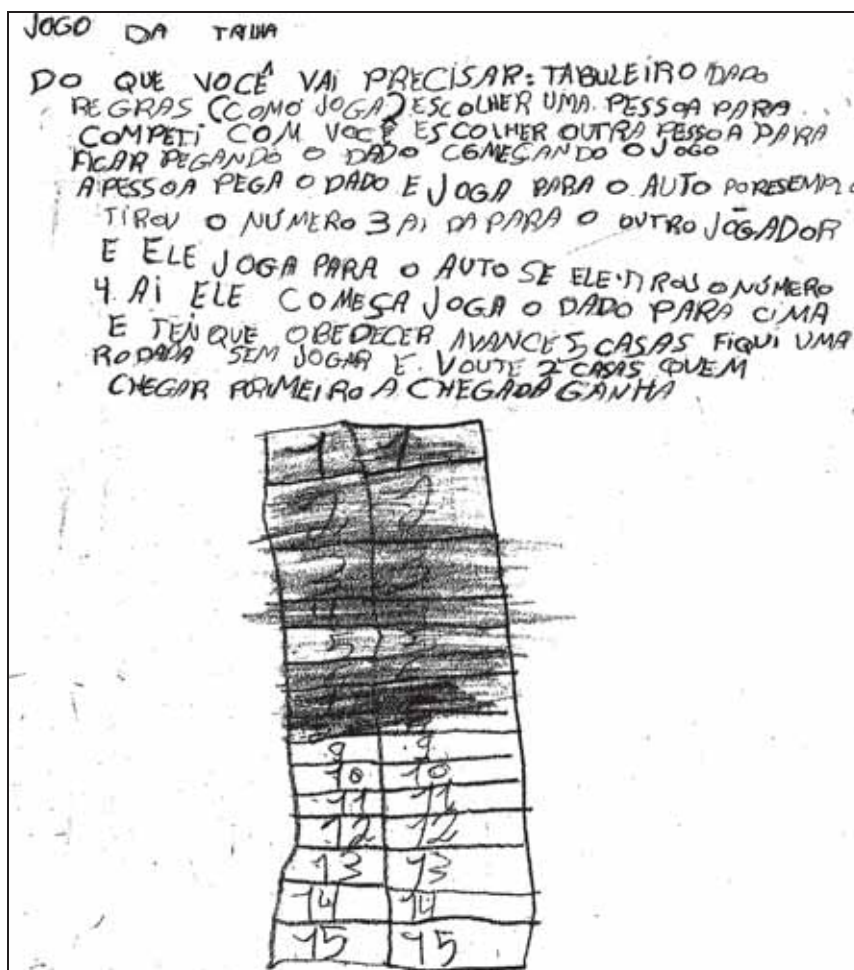 JOGO DA TRILHA
DO QUE VOCÊ VAI PRECISAR: TABULEIRO DADO
REGRAS (COMO JOGA) ESCOLHER UMA PESSOA PARA
COMPETI COM VOCÊ ESCOLHER OUTRA PESSOA PARA
FICAR PEGANDO O DADO COMEÇANDO O JOGO
A PESSOA PEGA O DADO E JOGA PARA O AUTO PORESEMPLO
TIROU O NÚMERO 3 AI DA PARA O OUTRO JOGADOR
E ELE JOGA PARA O AUTO SE ELE TIROU O NÚMERO
4. AI ELE COMESA JOGA O DADO PARA CIMA
E TEN QUE OBEDECER AVANCE 5 CASAS FIQUI UMA
RODADA SEM JOGAR E VOUTE 2 CASAS QUEM
CHEGAR PRIMEIRO A CHEGADA GANHA
1 1
2 2
3 3
5 5
9 9
10 10
11 11
12 12
13 13
14 14
15 15